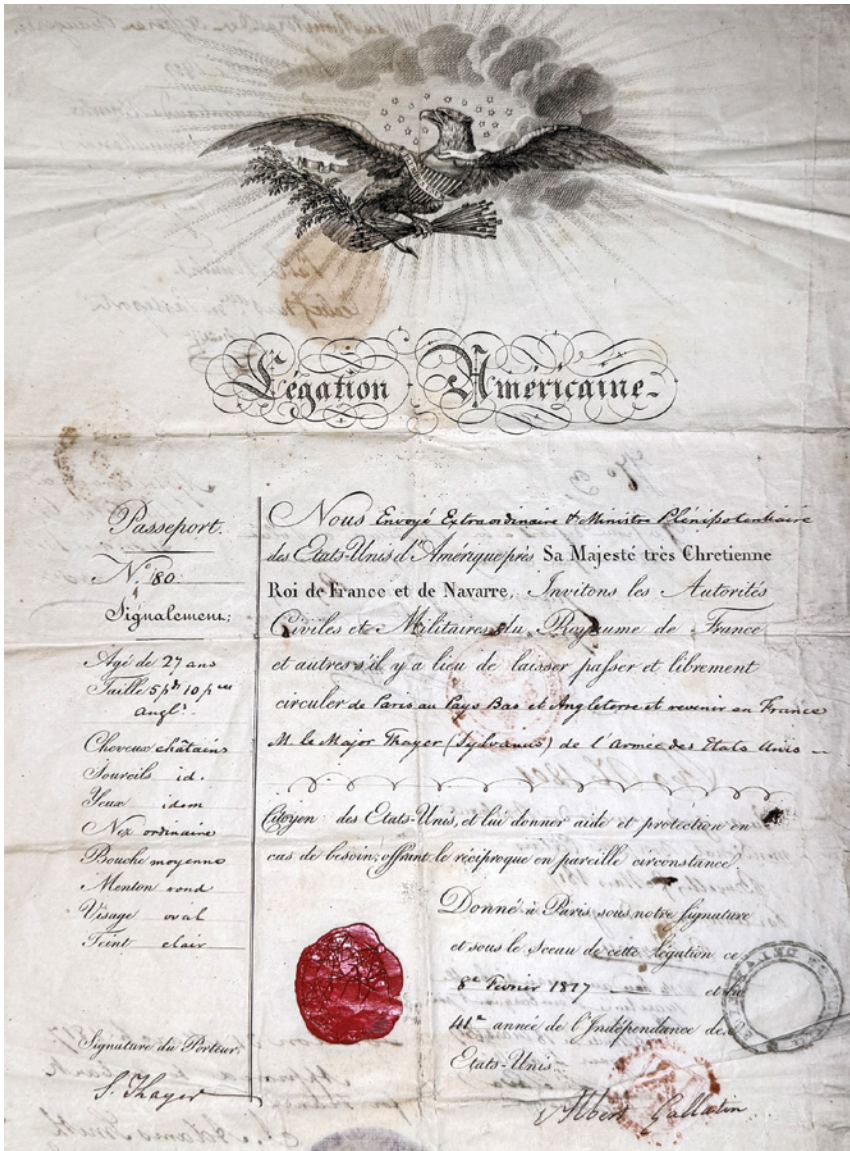 Légation Américaine
Passeport.
N.º 180
Signalement;
Agé de 27 ans
Taille 5 pds 10 pces
angl.
Cheveux châtains
Sourcils id.
Yeux idem
Nez ordinaire
Bouche moyenne
Menton rond
Visage oval
Teint clair
Signature du Porteur.
S. Thayer
Nous Envoyé Extraordinaire & Ministre Plénipotentiaire
des Etats-Unis d'Amérique près Sa Majesté très Chretienne
Roi de France et de Navarre, Invitons les Autorités
Civiles et Militaires du Royaume de France
et autres s'il y a lieu de laisser passer et librement
circuler de Paris au Pays Bas et Angleterre et revenir en France
M. le Major Thayer (Sylvanus) de l'Armée des Etats Unis
Citoyen des Etats-Unis, et lui donner aide et protection en
cas de besoin, offrant le réciproque en pareille circonstance.
Donné à Paris sous notre signature
et sous le Sceau de cette légation ce
8e Fevrier 1817 et la
41e année de l'Indépendance des
Etats-Unis.
Albert Gallatin